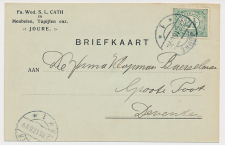 Fa. Wed. S. L. CATH
in
Meubelen, Tapijten enz.
JOURE.
BRIEFKAART
AAN
De Firma Kloosman Burselman
Groote Poot
Deventer